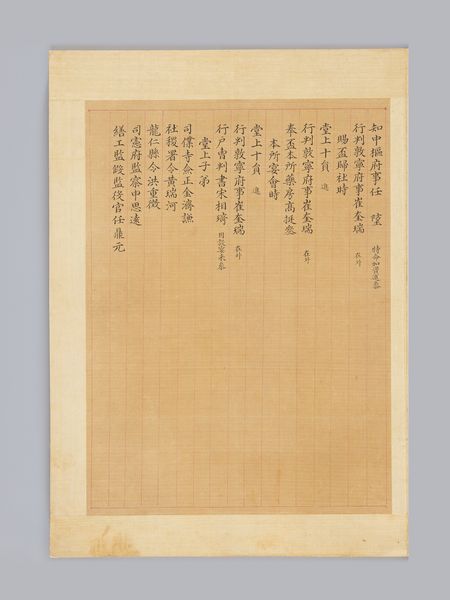 知中樞府事任埅 特命加資進參
行判敦寧府事崔奎瑞 在外
賜盃歸社時
堂上十員 進
行判敦寧府事崔奎瑞 在外
奉盃本所藥房高挺參
本所宴會時
堂上十員 進
行判敦寧府事崔奎瑞 在外
行戶曹判書宋相琦 因設宴未參
堂上子弟
司僕寺僉正金濟謙
社稷署令黃瑞河
龍仁縣令洪重徵
司憲府監察申思遠
繕工監假監役官任鼎元